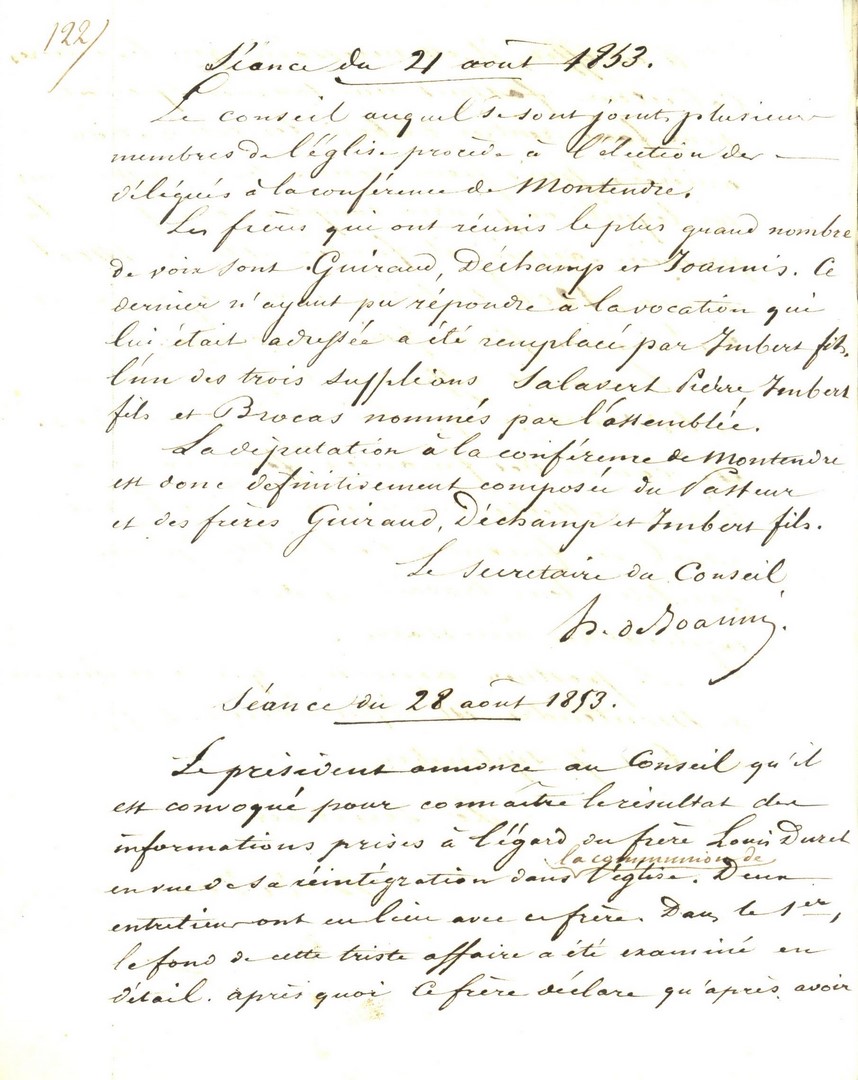 122/
Séance du 21 août 1853.
Le conseil auquel se sont joints plusieurs
membres de l'église procède à l'élection des
délégués à la conférence de Montendre.
Les frères qui ont réunis le plus grand nombre
de voix sont Guiraud, Déchamp et Joannis. Ce
dernier n'ayant pu répondre à la vocation qui
lui était adressée a été remplacé par Imbert fils,
l'un des trois suppléans Salavert Pierre, Imbert
fils et Brocas nommés par l'assemblée.
La députation à la conférence de Montendre
est donc définitivement composée du Pasteur
et des frères Guiraud, Déchamp et Imbert fils.
Le secretaire du Conseil
h. de Joannis.
Séance du 28 août 1853.
Le président annonce au Conseil qu'il
est convoqué pour connaître le résultat des
informations prises à l'égard du frère Louis Duret
la communion de
en vue de sa réintégration dans l'église. Deux
entretiens ont eu lieu avec ce frère. Dans le 1er,
le fond de cette triste affaire a été examiné en
détail. après quoi ce frère déclare qu'après avoir